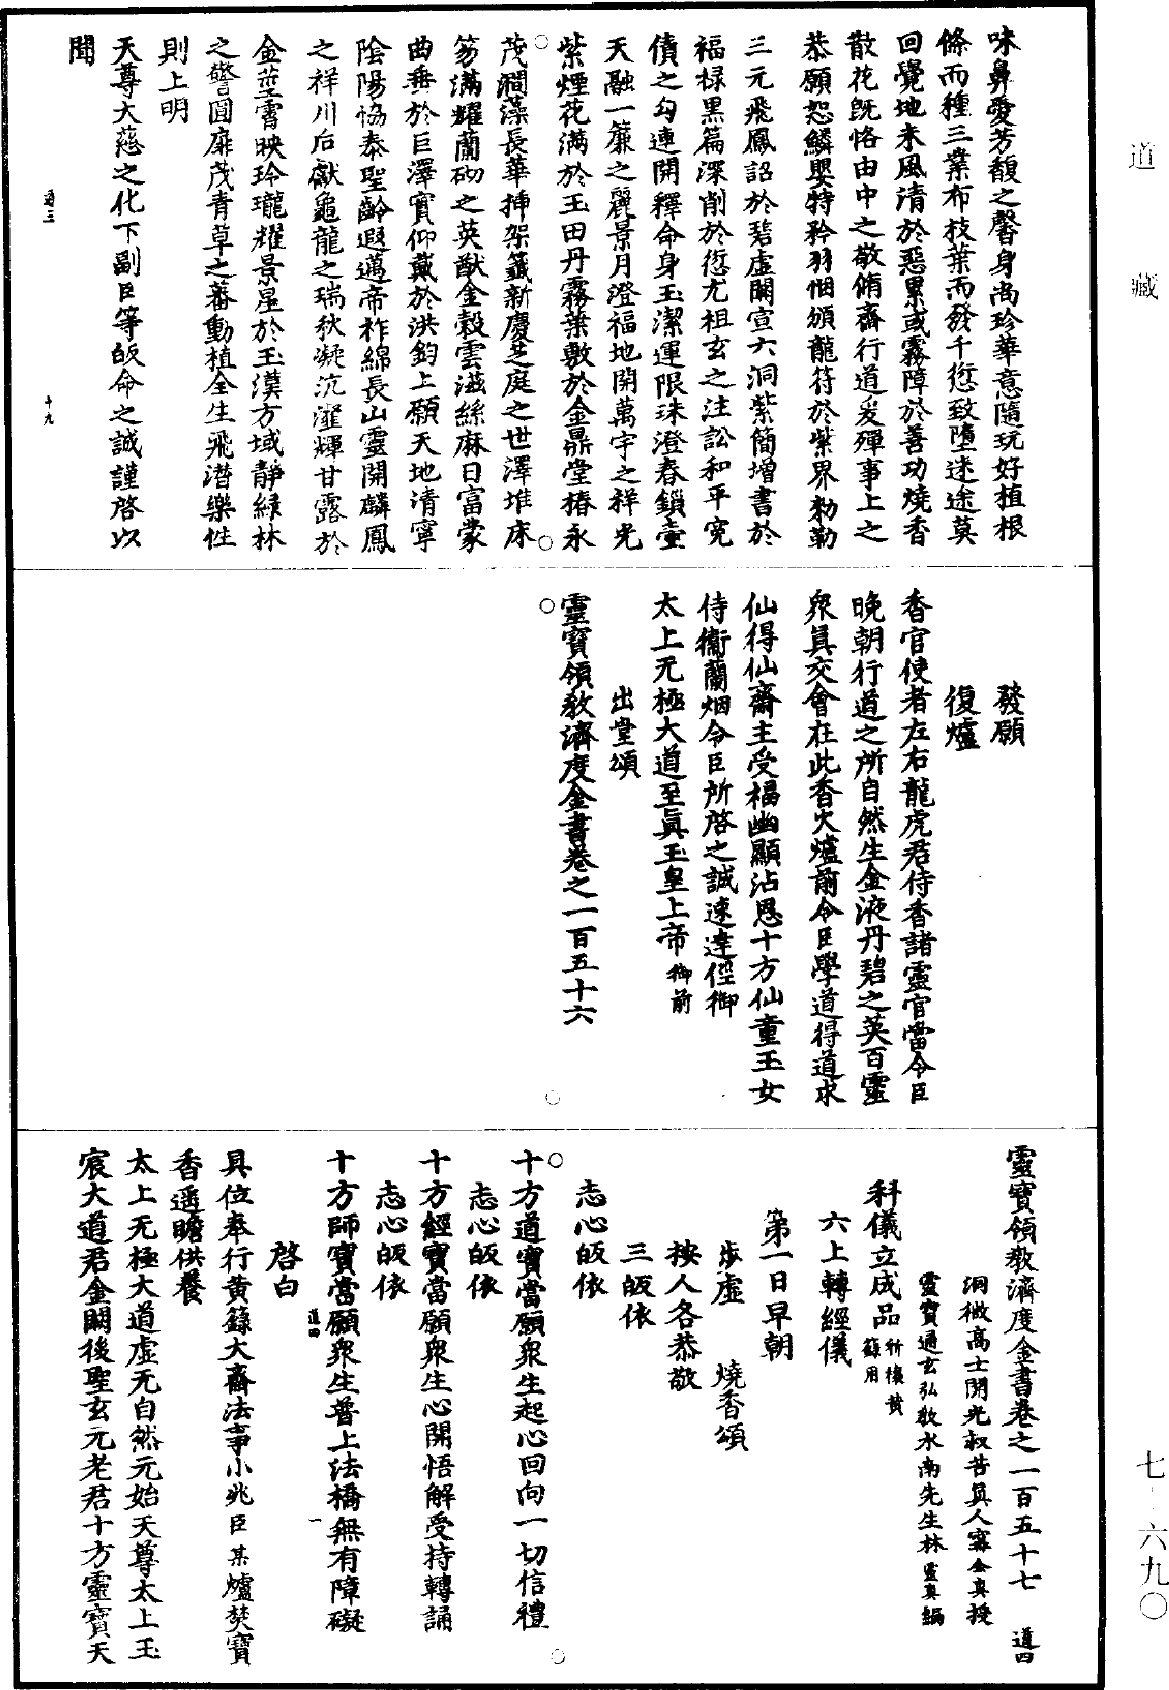 道藏
七·六九〇
味鼻愛芳馥之馨身尚珍華意隨玩好植根
條而種三業布枝葉而發千愆致墮迷途莫
回覺地末風清於惡累或霧障於善功燒香
散花既恪由中之敬脩齋行道爰殫事上之
恭願恕鱗嬰特矜羽悃頒龍符於紫界勑勒
三元飛鳳詔於碧虛關宣六洞紫簡增書於
福祿黑篇深削於愆尤祖玄之注訟和平寃
債之勾連開釋命身玉潔運限珠澄春鎖壼
天融一簾之麗景月澄福地開萬宇之祥光
紫煙花满於玉田丹霧葉敷於金鼎堂椿永
茂澗藻長華揷架籖新慶芝庭之世澤堆床
笏滿耀蘭砌之英猷金穀雲滋絲麻日富蒙
曲垂於巨澤實仰戴於洪鈞上願天地清寧
陰陽恊泰聖齡遐邁帝祚綿長山靈開麟鳳
之祥川后獻龜龍之瑞秋凝沆瀣輝甘露於
金莖霄映玲瓏耀景星於玉漢方域靜綠林
之警圓扉茂青草之蕃動植全生飛潛樂性
則上明
天尊大慈之化下副臣等皈命之誠謹啓以
聞
道三
十九
發願
復爐
香官使者左右龍虎君侍香諸靈官當令臣
晚朝行道之所自然生金液丹碧之英百靈
衆眞交會在此香火爐前令臣學道得道求
仙得仙齋主受福幽顯沾恩十方仙童玉女
侍衛蘭烟令臣所啓之誠速達徑御
太上无極大道至眞玉皇上帝御前
出堂頌
靈寶領敎濟度金書卷之一百五十六
靈寶領敎濟度金書卷之一百五十七 道四
洞微高士開光救苦眞人甯全真授
靈寶通玄弘敎水南先生林靈真編
科儀立成品祈禳黄籙用
六上轉經儀
第一日早朝
步虛 燒香頌
按人各恭敬
三皈依
志心皈依
十方道寶當願衆生起心回向一切信禮
志心皈依
十方經寶當願衆生心開悟解受持轉誦
志心皈依
十方師寶當願衆生普上法橋無有障礙
道四
一
啓白
具位奉行黄籙大齋法事小兆臣某爐焚寶
香遥瞻供養
太上无極大道虛无自然元始天尊太上玉
宸大道君金闕後聖玄元老君十方靈寶天